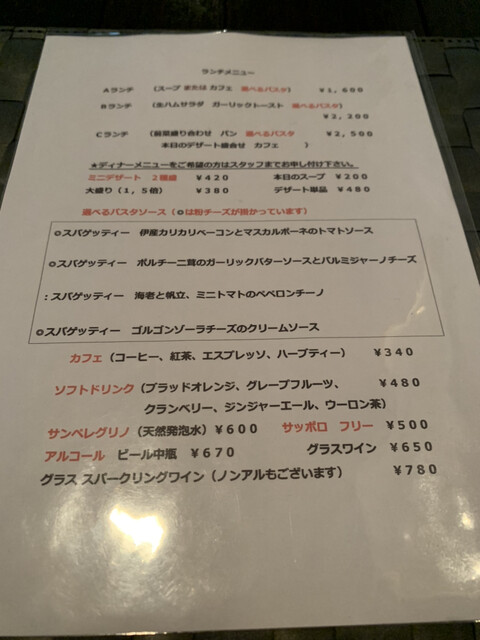 ランチメニュー
Aランチ （スープ または カフェ 選べるパスタ） ￥1,600
Bランチ （生ハムサラダ ガーリックトースト 選べるパスタ）
￥2,200
Cランチ （前菜盛り合わせ パン 選べるパスタ ￥2,500
本日のデザート盛合せ カフェ ）
★ディナーメニューをご希望の方はスタッフまでお申し付け下さい。
ミニデザート 2種盛 ￥420 本日のスープ ￥200
大盛り（1,5倍） ￥380 デザート単品 ￥480
選べるパスタソース（◎は粉チーズが掛かっています）
◎スパゲッティー 伊産カリカリベーコンとマスカルポーネのトマトソース
◎スパゲッティー ポルチーニ茸のガーリックバターソースとパルミジャーノチーズ
：スパゲッティー 海老と帆立、ミニトマトのペペロンチーノ
◎スパゲッティー ゴルゴンゾーラチーズのクリームソース
カフェ（コーヒー、紅茶、エスプレッソ、ハーブティー） ￥340
ソフトドリンク（ブラッドオレンジ、グレープフルーツ、 ￥480
クランベリー、ジンジャーエール、ウーロン茶）
サンペレグリノ（天然発泡水）￥600 サッポロ フリー ￥500
アルコール ビール中瓶 ￥670 グラスワイン ￥650
グラス スパークリングワイン（ノンアルもございます） ￥780